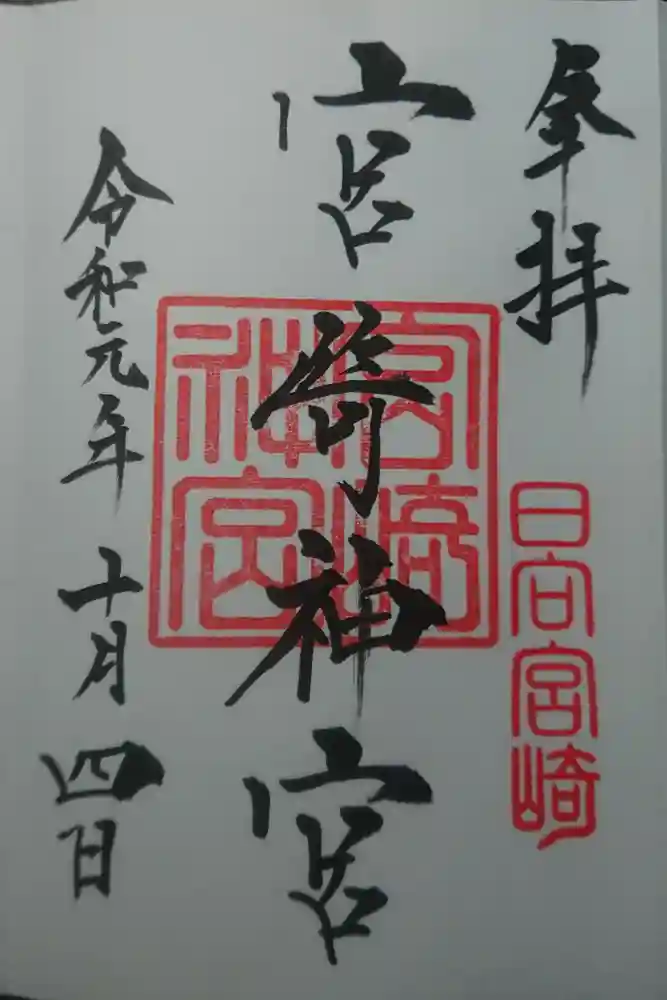 奉拝
日向宮崎
宮﨑神宮
宮崎神宮
令和元年十月四日